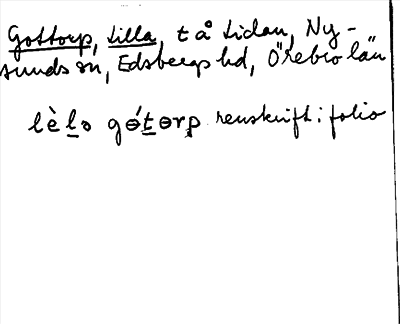 Gottorp, Lilla, t å tidan, Ny-
sunds sn, Edsbergs hd, Örebro län
lè l̲ɔ gɵ́t̲ɵrp renskrift i folio